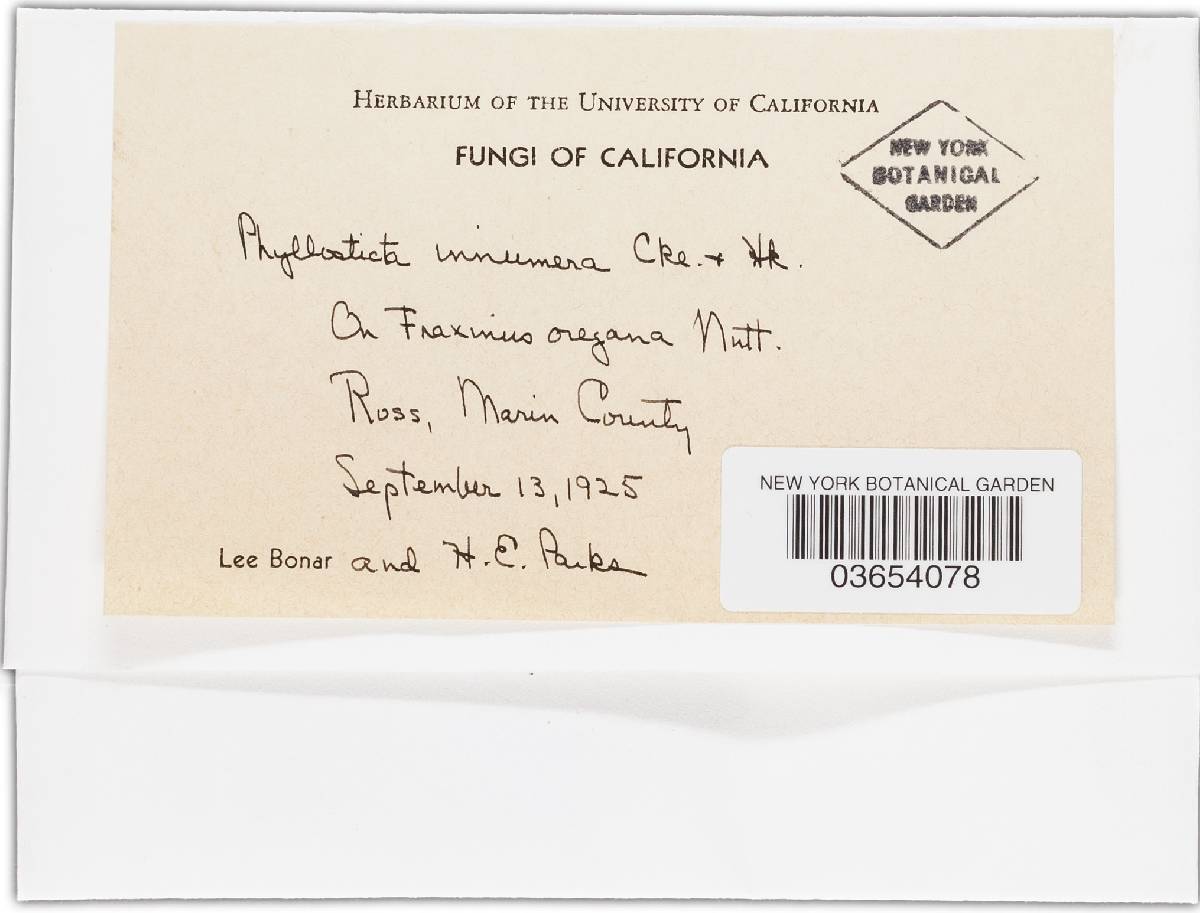 HERBARIUM OF THE UNIVERSITY OF CALIFORNIA
FUNGI OF CALIFORNIA
NEW YORK
BOTANICAL
GARDEN
Phyllosticta innumera Cke. + Hk.
On Fraxinus oregana Nutt.
Ross, Marin County
September 13, 1925
Lee Bonar and H.E. Parks
NEW YORK BOTANICAL GARDEN
03654078